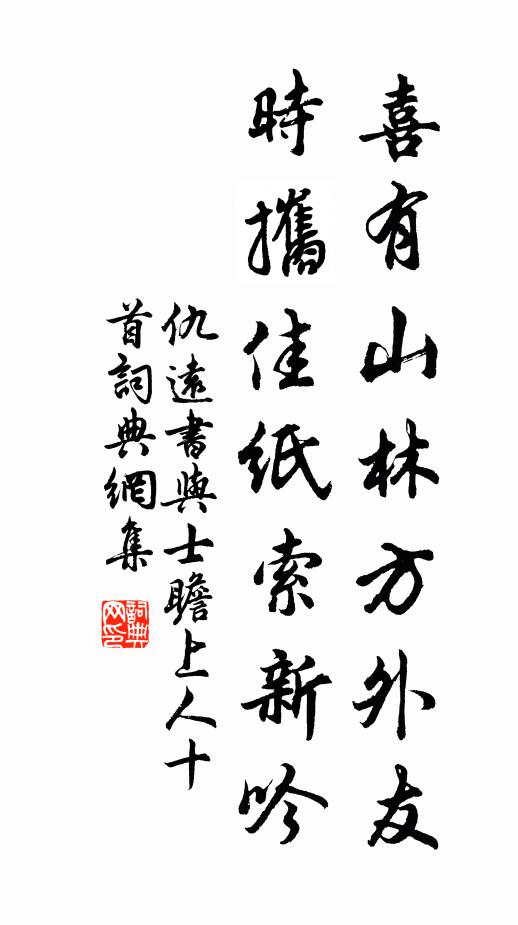 喜有山林方外友
時攜佳紙索新吟
仇遠書與士瞻上人十
首詞典網集
詞典网印